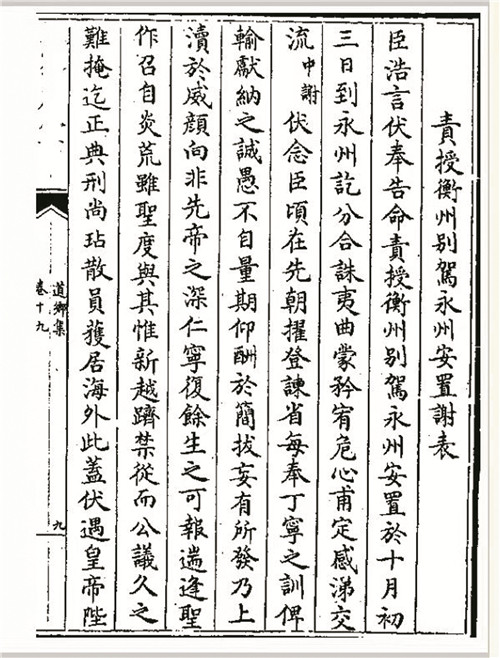 責授衡州别駕永州安置謝表
臣浩言伏奉告命責授衡州别駕永州安置於十月初
三日到永州訖分合誅夷曲蒙矜宥危心甫定感涕交
流中謝伏念臣頃在先朝擢登諫省每奉丁寧之訓俾
輸獻納之誠愚不自量期仰酬於簡拔妄有所發乃上
瀆於威顔向非先帝之深仁寧復餘生之可報遄逢聖
作召自炎荒雖聖度與其惟新越躋禁從而公議久之
難掩迄正典刑尚玷散員獲居海外此蓋伏遇皇帝陛
道鄉集
卷十九
九